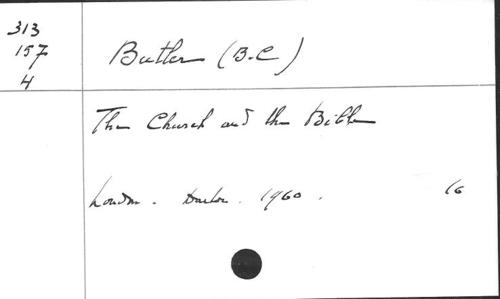 313
157
4
Butler (B.C)
The Church and the Bible
London. Darton. 1960. 16